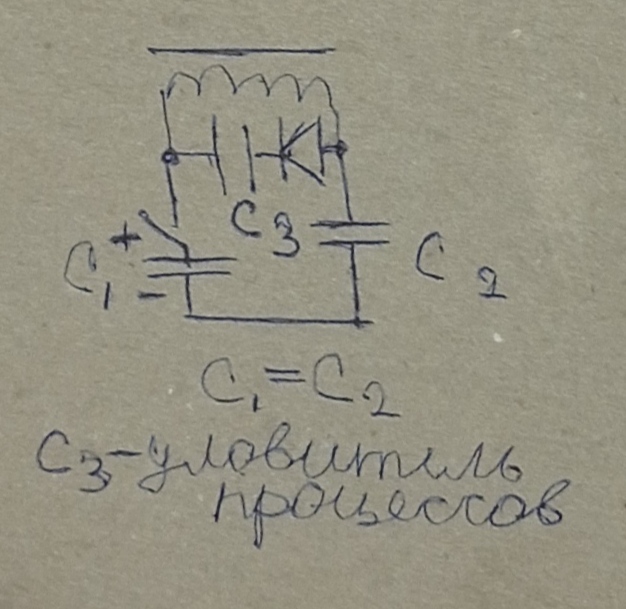 C3
C1 + -
C2
C1=C2
C3-уловитель
процессов